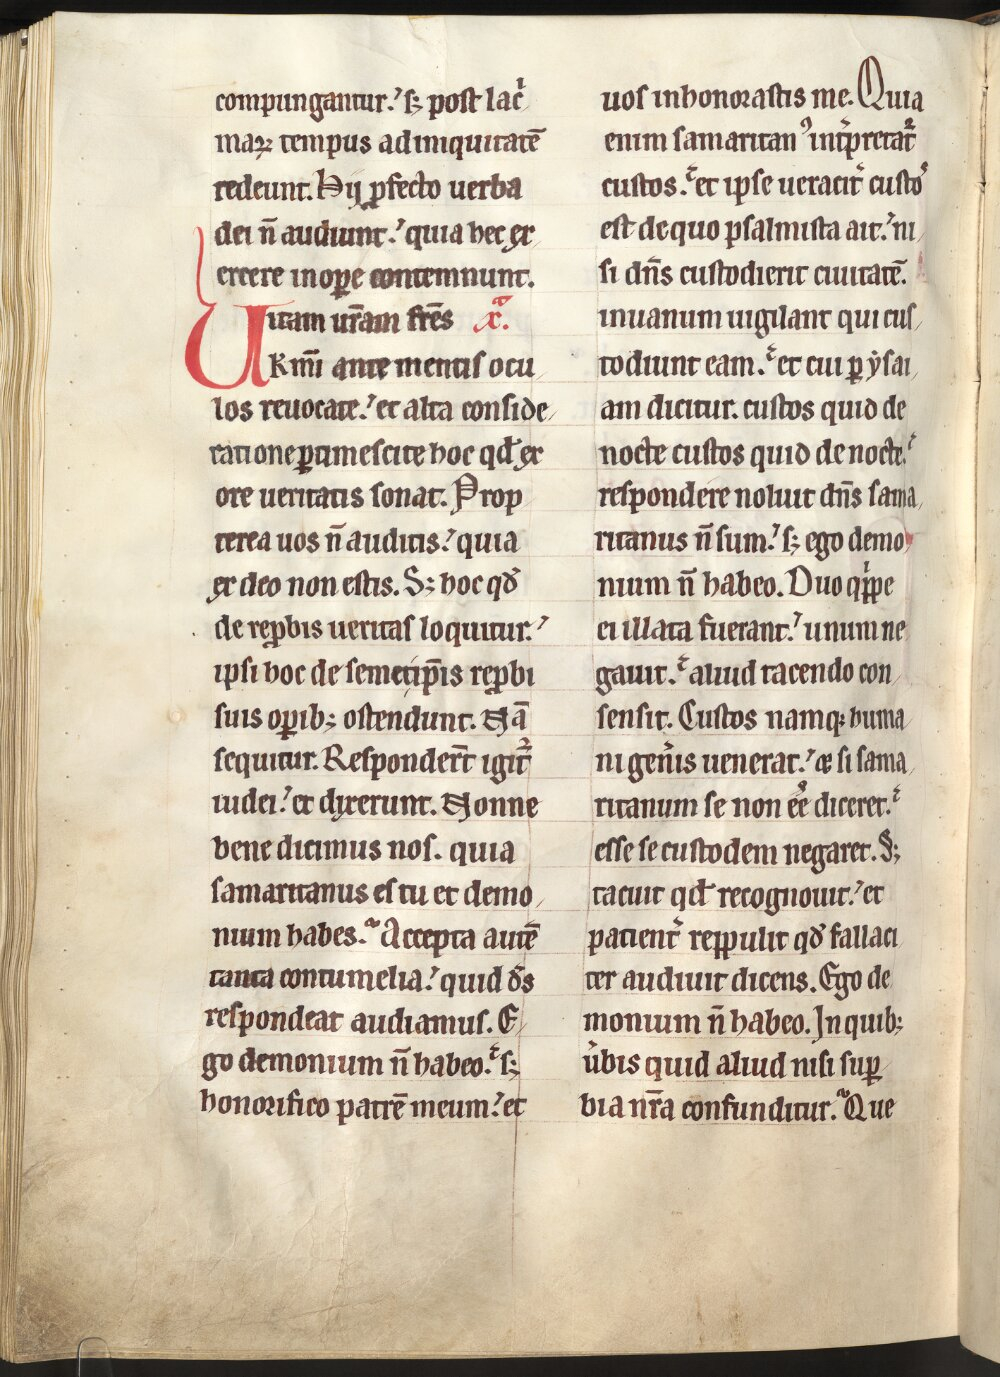 compungantur. s; post lac̍
maꝝ tempus ad iniquitatē
redeunt. Hij ꝓfecto uerba
dei n̄ audiunt. quia hec ex
ercere in oꝑe contemnunt.
Uitam ur̄am fr̄es x̊.
km̄i ante mentis ocu
los reuocate. et alta conside
ratione ꝑtimescite hoc qđ ex
ore ueritatis sonat. Prop
terea uos n̄ auditis. quia
ex deo non estis. S; hoc qđ
de reꝓbis ueritas loquitur.
ipsi hoc de semetip̄is reꝓbi
suis oꝑib; ostendunt. Nā
sequitur. Responder̄t igit᷑
iudei. et dixerunt. Nonne
bene dicimus nos. quia
samaritanus es tu et demo
nium habes. Accepta autē
tanta contumelia. quid dn̄s
respondeat audiamus. E
go demonium n̄ habeo. s;
honorifico patrē meum. et
uos inhonorastis me. Quia
enim samaritanꝰ int̍pretat᷑
custos. et ipse ueracit̍ custoꝰ
est de quo psalmista ait. ni
si dn̄s custodierit ciuitatē.
in uanum uigilant qui cus
todiunt eam. et cui ꝑ ẏsai
am dicitur. custos quid de
nocte custos quid de nocte.
respondere noluit dn̄s sama
ritanus n̄ sum. s; ego demo
nium n̄ habeo. Duo qͥppe
ei illata fuerant. unum ne
gauit. aliud tacendo con
sensit. Custos namqꝫ huma
ni gen̍is uenerat. & si sama
ritanum se non ēe diceret.
esse se custodem negaret. S;
tacuit qđ recognouit. et
patient̍ reppulit qđ fallaci
ter audiuit dicens. Ego de
monium n̄ habeo. In quib;
u̍bis quid aliud nisi suꝑ
bia nr̄a confunditur. Que